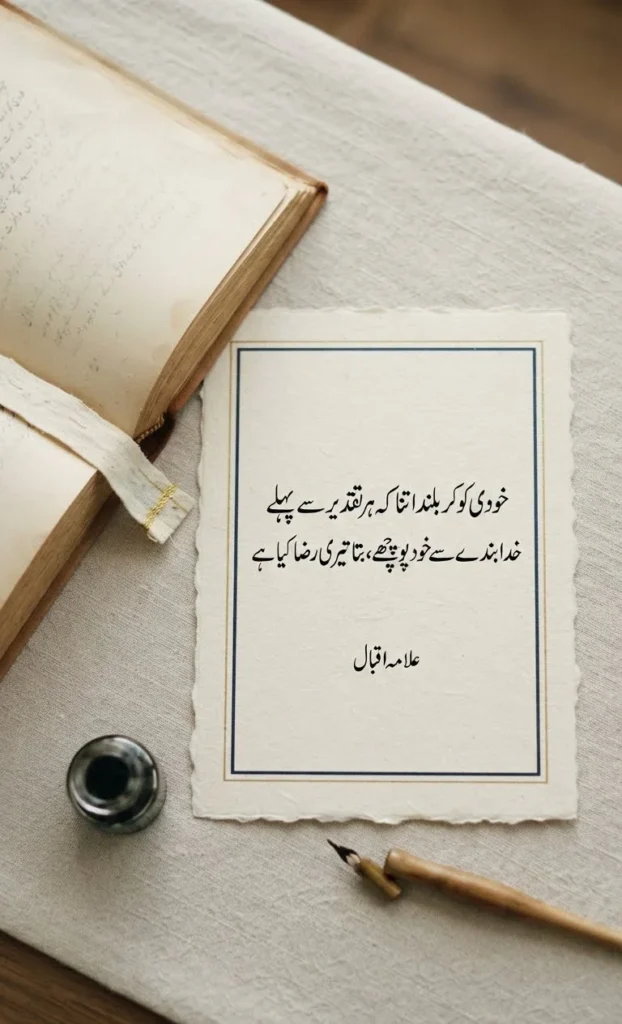 خودی کو کر بلند اتنا کہ ہر تقدیر سے پہلے
خدا بندے سے خود پوچھے، بتا تیری رضا کیا ہے
علامہ اقبال